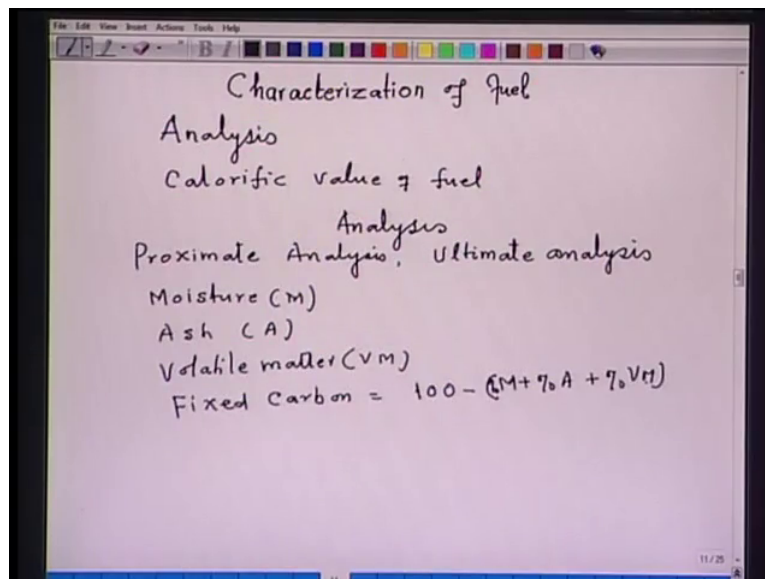 File Edit View Insert Actions Tools Help
B I
Characterization of fuel
Analysis
Calorific value of fuel
Analysis
Proximate Analysis, Ultimate analysis
Moisture (M)
Ash (A)
Volatile matter (VM)
Fixed Carbon = 100 - (%M + %A + %VM)
11/25